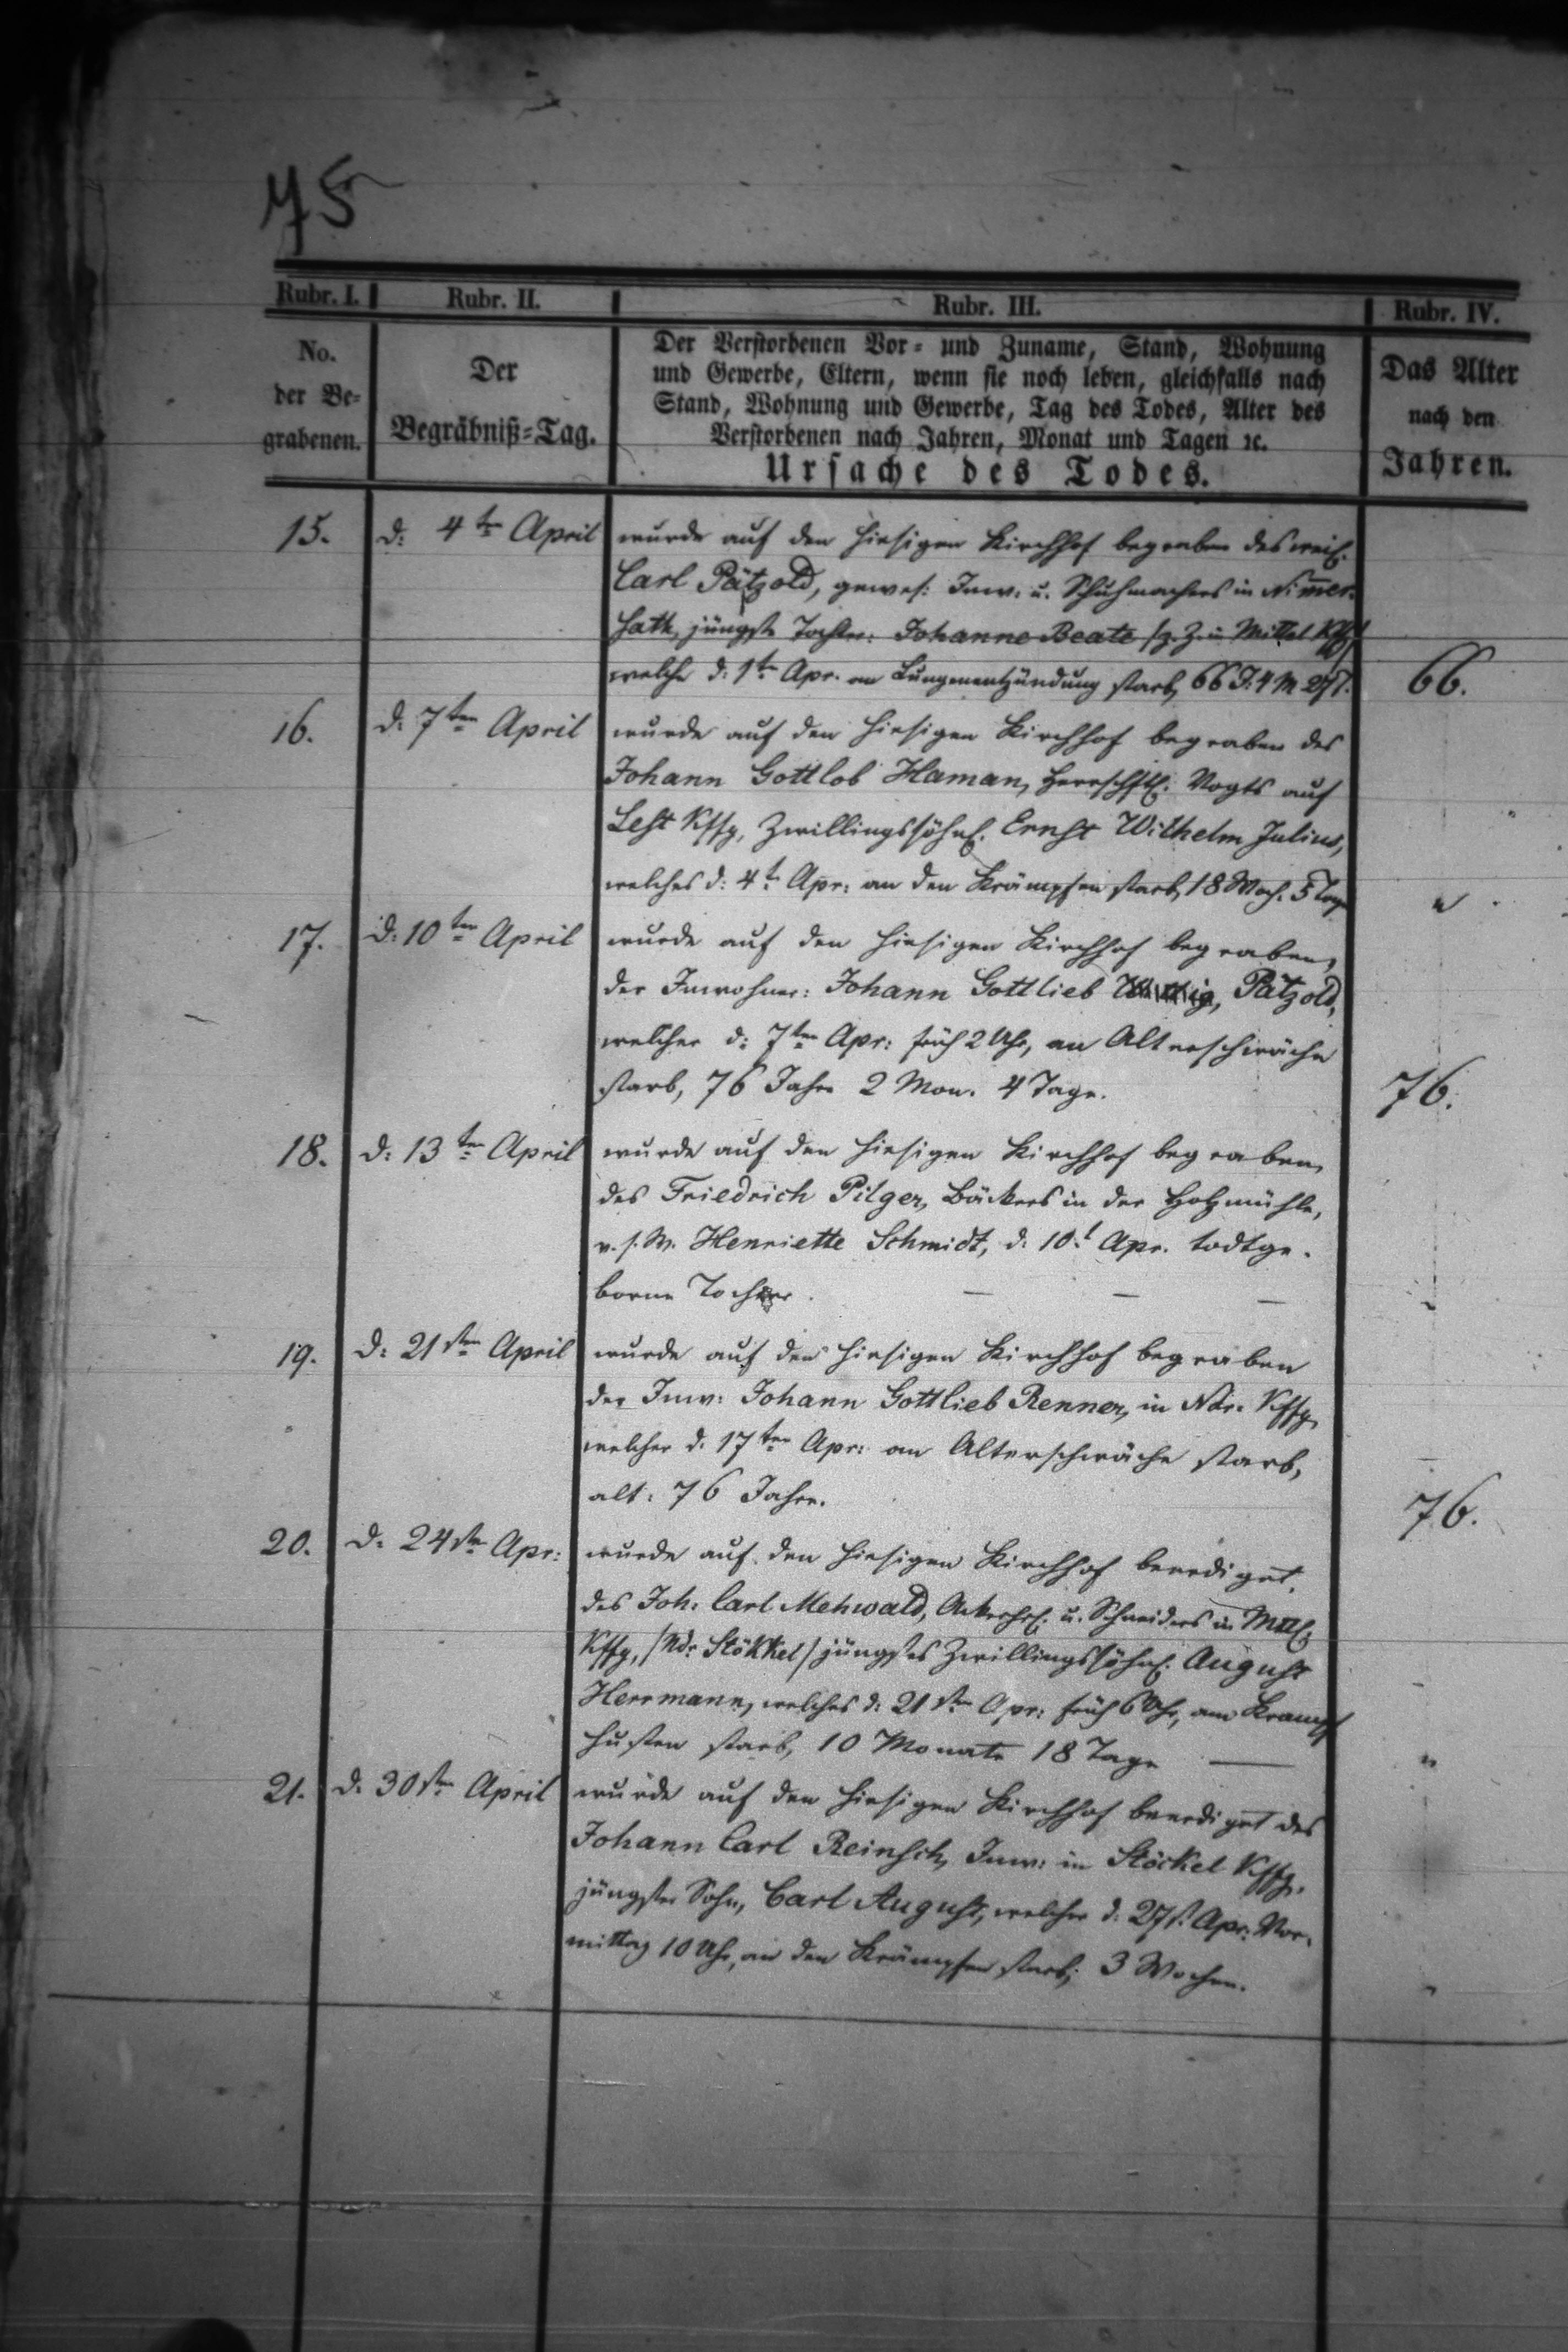 75
Rubr. I. Rubr. II. Rubr. III. Rubr. IV.
No.
der Be-
grabenen.
Der
Begräbniß-Tag.
Der Verstorbenen Vor- und Zuname, Stand, Wohnung
und Gewerbe, Eltern, wenn sie noch leben, gleichfalls nach
Stand, Wohnung und Gewerbe, Tag des Todes, Alter des
Verstorbenen nach Jahren, Monat und Tagen ꝛc.
Ursache des Todes.
Das Alter
nach den
Jahren.
15. d: 4ten April wurde auf den hiesigen Kirchhof begraben des weil.
Carl Pätzold, gewes: Inw: u. Schuhmachers in Nimmer-
sath, jüngste Tochter: Johanne Beate /z. Z. in Mittel Kffg/
welche d: 1ten Apr. an Lungenentzündung starb, 66 J. 4 M 27 T. 66.
16. d: 7ten April wurde auf den hiesigen Kirchhof begraben des
Johann Gottlob Haman, Herrschftl. Vogts auf
Lest Kffg, Zwillingssöhnl. Ernst Wilhelm Julius,
welches d: 4t. Apr: an den Krämpfen starb, 18 Woch. 5 Tage "
17. d: 10ten April wurde auf den hiesigen Kirchhof begraben,
der Inwohner: Johann Gottlieb Pätzold,
welcher d: 7ten Apr: früh 2 Uhr, an Alterschwäche
starb, 76 Jahr 2 Mon. 4 Tage. 76.
18. d: 13ten April wurde auf den hiesigen Kirchhof begraben,
des Friedrich Pilger, Bäckers in der Holzmühle,
v. s. W. Henriette Schmidt, d. 10t Apr. todtge-
borne Tochter. — — —
19. d: 21sten April wurde auf den hiesigen Kirchhof begraben
der Inw: Johann Gottlieb Renner, in Ndr. Kffg,
welcher d. 17ten Apr: an Alterschwäche starb,
alt: 76 Jahr. 76.
20. d: 24sten Apr: wurde auf den hiesigen Kirchhof beerdiget,
des Joh: Carl Mehwald, Ackerhsl. u. Schneiders in Mttl.
Kffg, /Ndr Stökkel/ jüngstes Zwillingssöhnl. August
Herrmann, welches d: 21sten Apr: früh 6 Uhr, am Krampf
husten starb, 10 Monate 18 Tage — "
21. d. 30sten April wurde auf den hiesigen Kirchhof beerdiget des
Johann Carl Reinsch, Inw: in Stöckel Kffg,
jüngster Sohn, Carl August, welcher d: 27st. Apr: Vor-
mittag 10 Uhr, an den Krämpfen starb; 3 Wochen. "